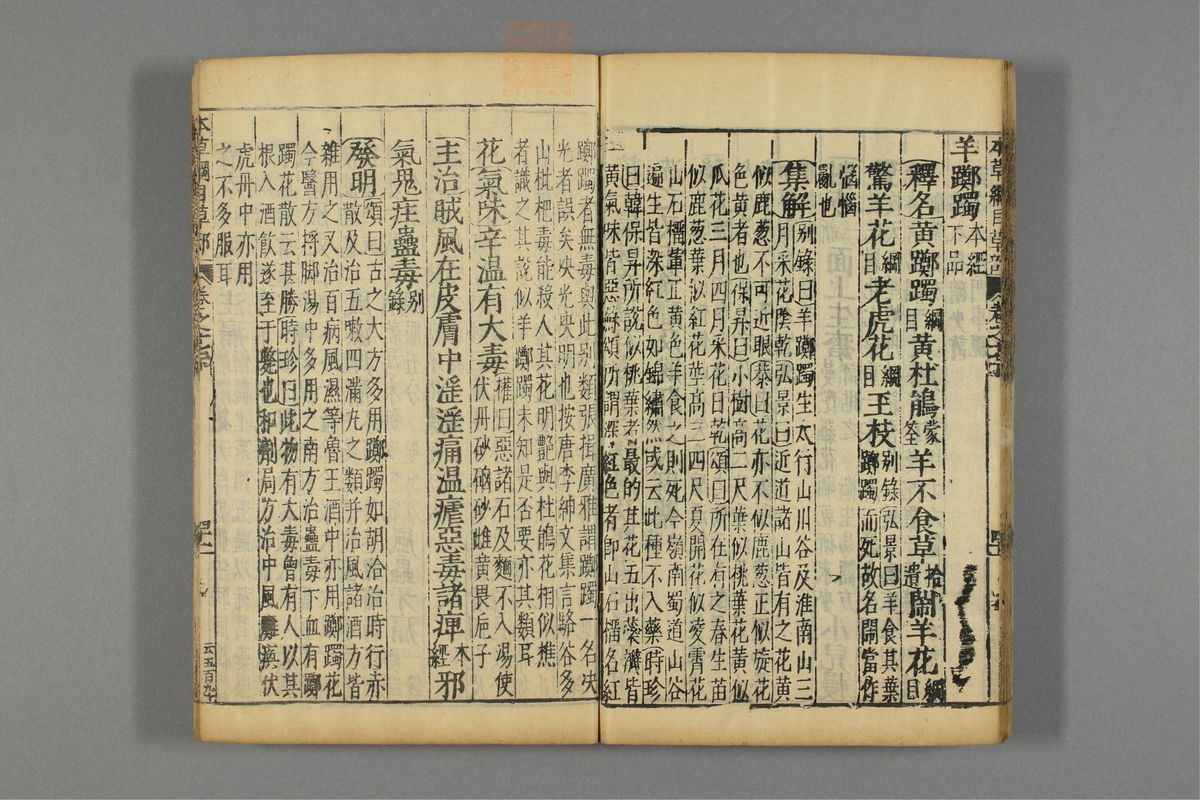 本草綱目草部
羊躑躅本經下品
釋名黃躑躅綱目黃杜鵑蒙筌羊不食草拾遺鬧羊花綱目
驚羊花綱目老虎花綱目玉枝別錄弘景曰羊食其葉躑躅而死故名鬧當作
惱惱亂也
集解別錄曰羊躑躅生太行山川谷及淮南山三
月采花陰乾弘景曰近道諸山皆有之花黃
似鹿葱不可近眼恭曰花亦不似鹿葱正似旋花
色黃者也保昇曰小樹高二尺葉似桃葉花黃似
瓜花三月四月采花日乾頌曰所在有之春生苗
似鹿葱葉似紅花莖高三四尺夏開花似凌霄花
山石榴輩正黃色羊食之則死今嶺南蜀道山谷
遍生皆深紅色如錦繡然或云此種不入藥時珍
曰韓保昇所說似桃葉者最的其花五出蕊瓣皆
黃氣味皆惡蘇頌所謂深紅色者即山石榴名紅
躑躅者無毒與此別類張揖廣雅謂躑躅一名决
光者誤矣决光决明也按唐李紳文集言駱谷多
山枇杷毒能殺人其花明艷與杜鵑花相似樵
者識之其說似羊躑躅未知是否要亦其類耳
花氣味辛溫有大毒權曰惡諸石及麵不入湯使伏丹砂硇砂雌黃畏巵子
主治賊風在皮膚中淫淫痛溫瘧惡毒諸痺本經邪
氣鬼疰蠱毒別錄
發明頌曰古之大方多用躑躅如胡洽治時行赤
散及治五嗽四滿丸之類并治風諸酒方皆
雜用之又治百病風濕等魯王酒中亦用躑躅花
今醫方捋脚湯中多用之南方治蠱毒下血有躑
躅花散云甚勝時珍曰此物有大毒曾有人以其
根入酒飲遂至于斃也和劑局方治中風癱瘓伏
虎丹中亦用
之不多服耳
本草綱目草部